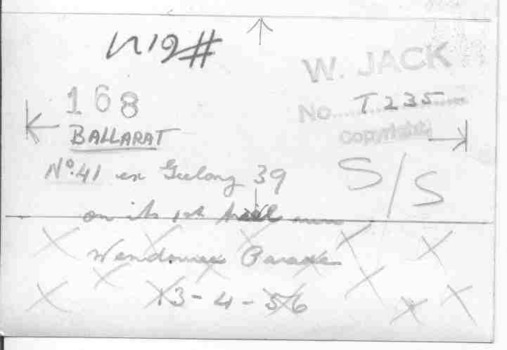 W. JACK
No. T235
Copyright
168
BALLARAT
Nº.41 ex Geelong 39
S/S
on its 1st trial run
Wendouree Parade
13-4-56